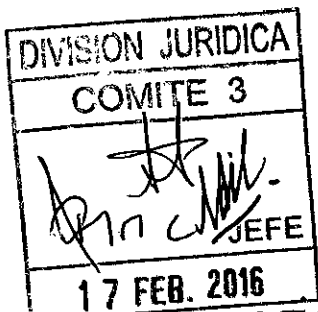 DIVISION JURIDICA
COMITE 3
JEFE
17 FEB. 2016